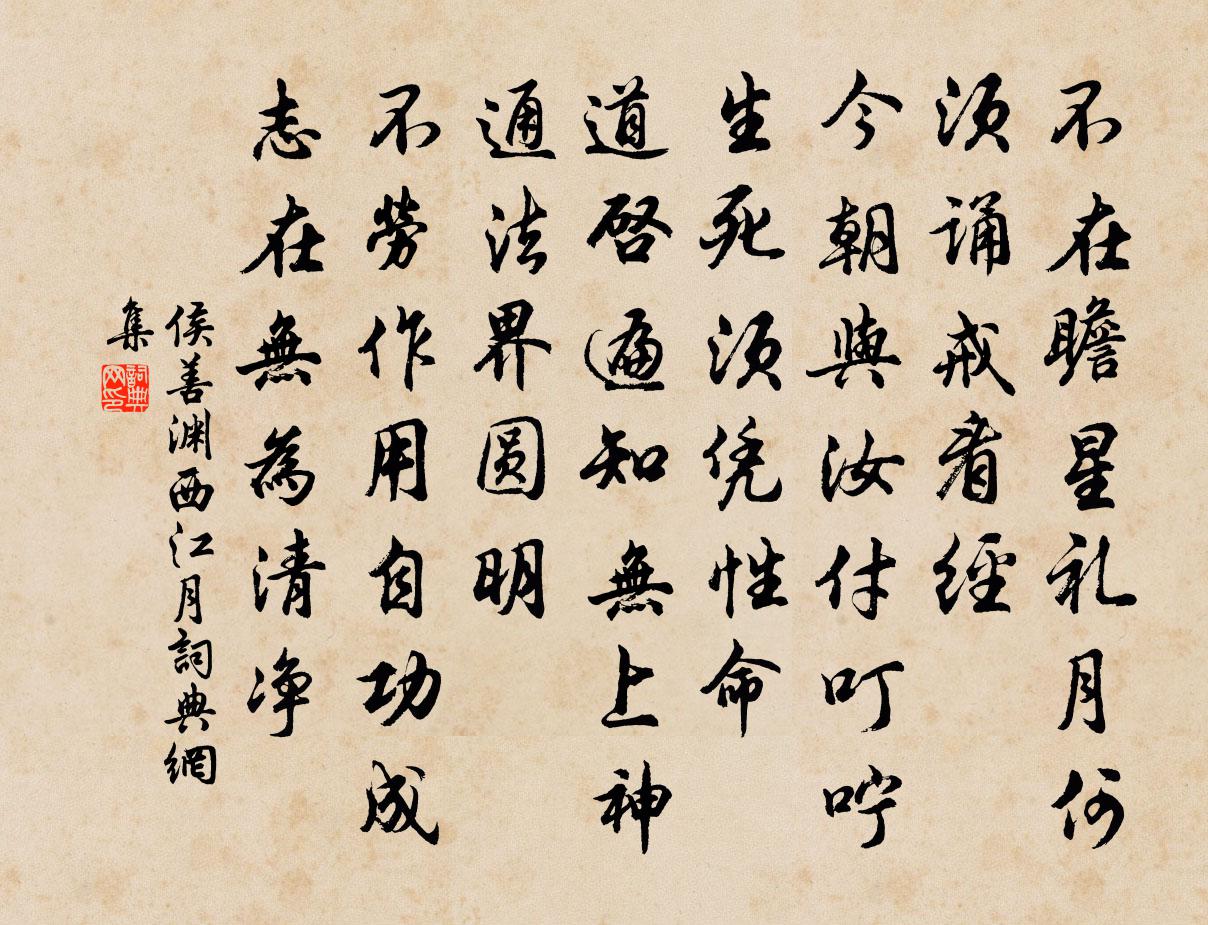 不在瞻星礼月何
须诵戒看經
今朝與汝付叮咛
生死须凭性命
道啓遍知無上神
通法界圆明
不勞作用自功成
志在無為清净
侯善渊西江月詞典網
集
詞典网印